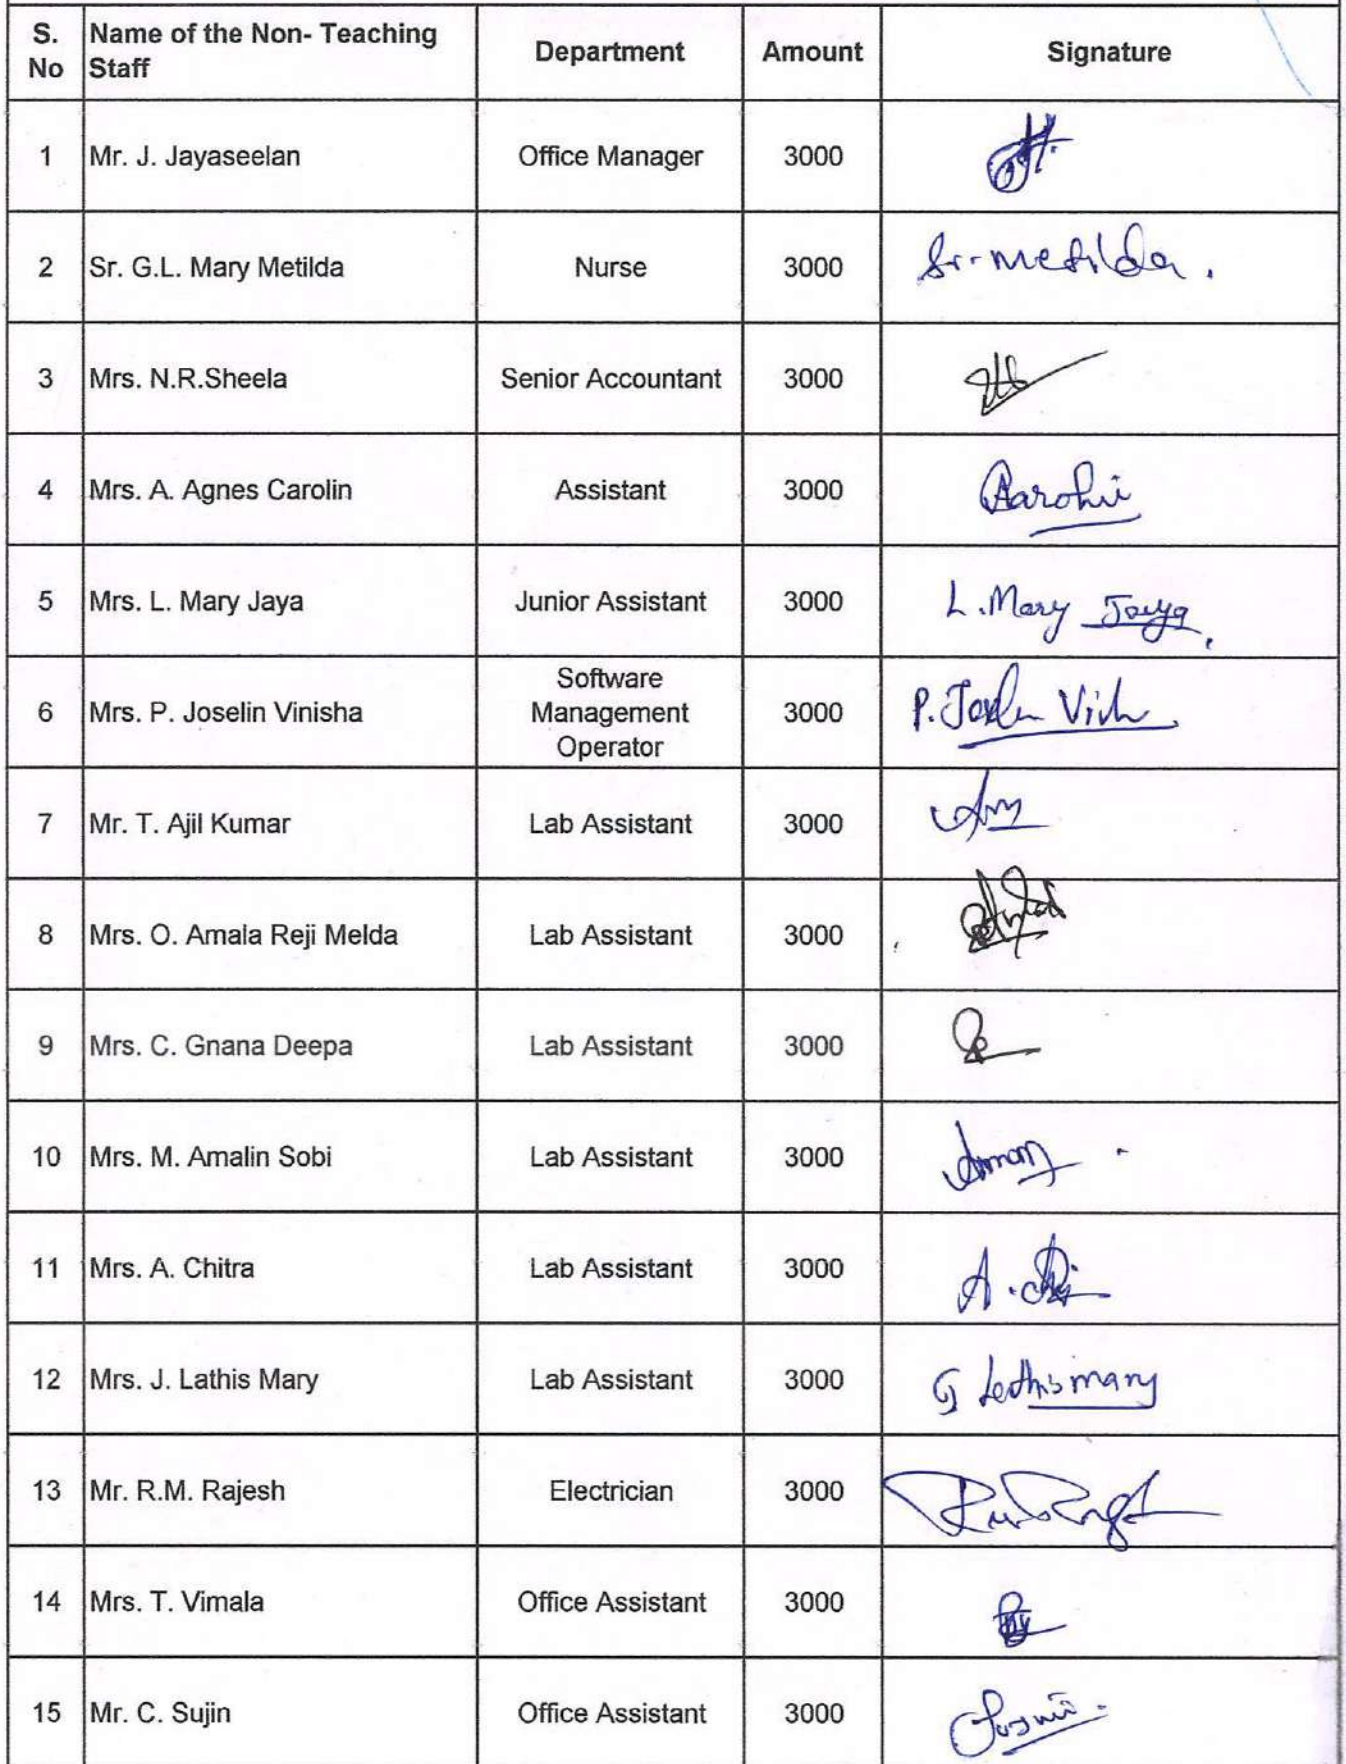 S. No Name of the Non- Teaching Staff Department Amount Signature
1 Mr. J. Jayaseelan Office Manager 3000
2 Sr. G.L. Mary Metilda Nurse 3000 Sr. Metilda.
3 Mrs. N.R.Sheela Senior Accountant 3000
4 Mrs. A. Agnes Carolin Assistant 3000
5 Mrs. L. Mary Jaya Junior Assistant 3000 L. Mary Jaya
6 Mrs. P. Joselin Vinisha Software Management Operator 3000
7 Mr. T. Ajil Kumar Lab Assistant 3000
8 Mrs. O. Amala Reji Melda Lab Assistant 3000
9 Mrs. C. Gnana Deepa Lab Assistant 3000
10 Mrs. M. Amalin Sobi Lab Assistant 3000
11 Mrs. A. Chitra Lab Assistant 3000
12 Mrs. J. Lathis Mary Lab Assistant 3000 J Lathis mary
13 Mr. R.M. Rajesh Electrician 3000
14 Mrs. T. Vimala Office Assistant 3000
15 Mr. C. Sujin Office Assistant 3000